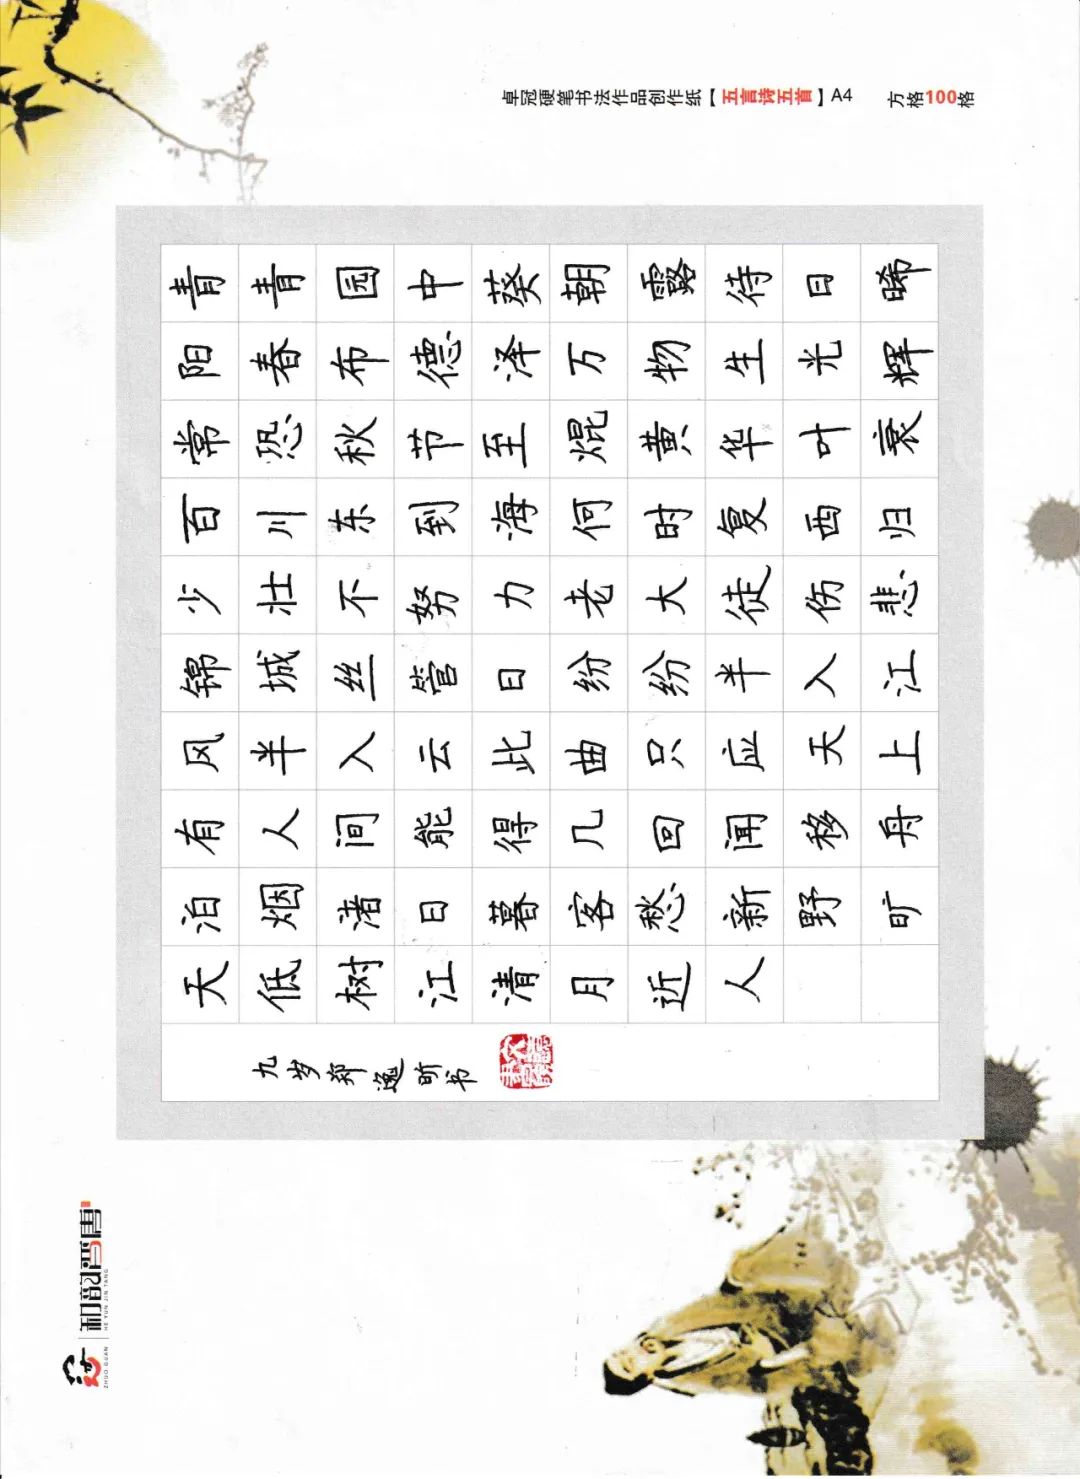 卓冠硬笔书法作品创作纸【五言诗五首】A4 方格100格
青青园中葵朝露待日晞
阳春布德泽万物生光辉
常恐秋节至焜黄华叶衰
百川东到海何时复西归
少壮不努力老大徒伤悲
锦城丝管日纷纷半入江
风半入云此曲只应天上
有人间能得几回闻移舟
泊烟渚日暮客愁新野旷
天低树江清月近人
九岁郑逸昕书
和韵晋唐
HE YUN JIN TANG
ZHUO GUAN